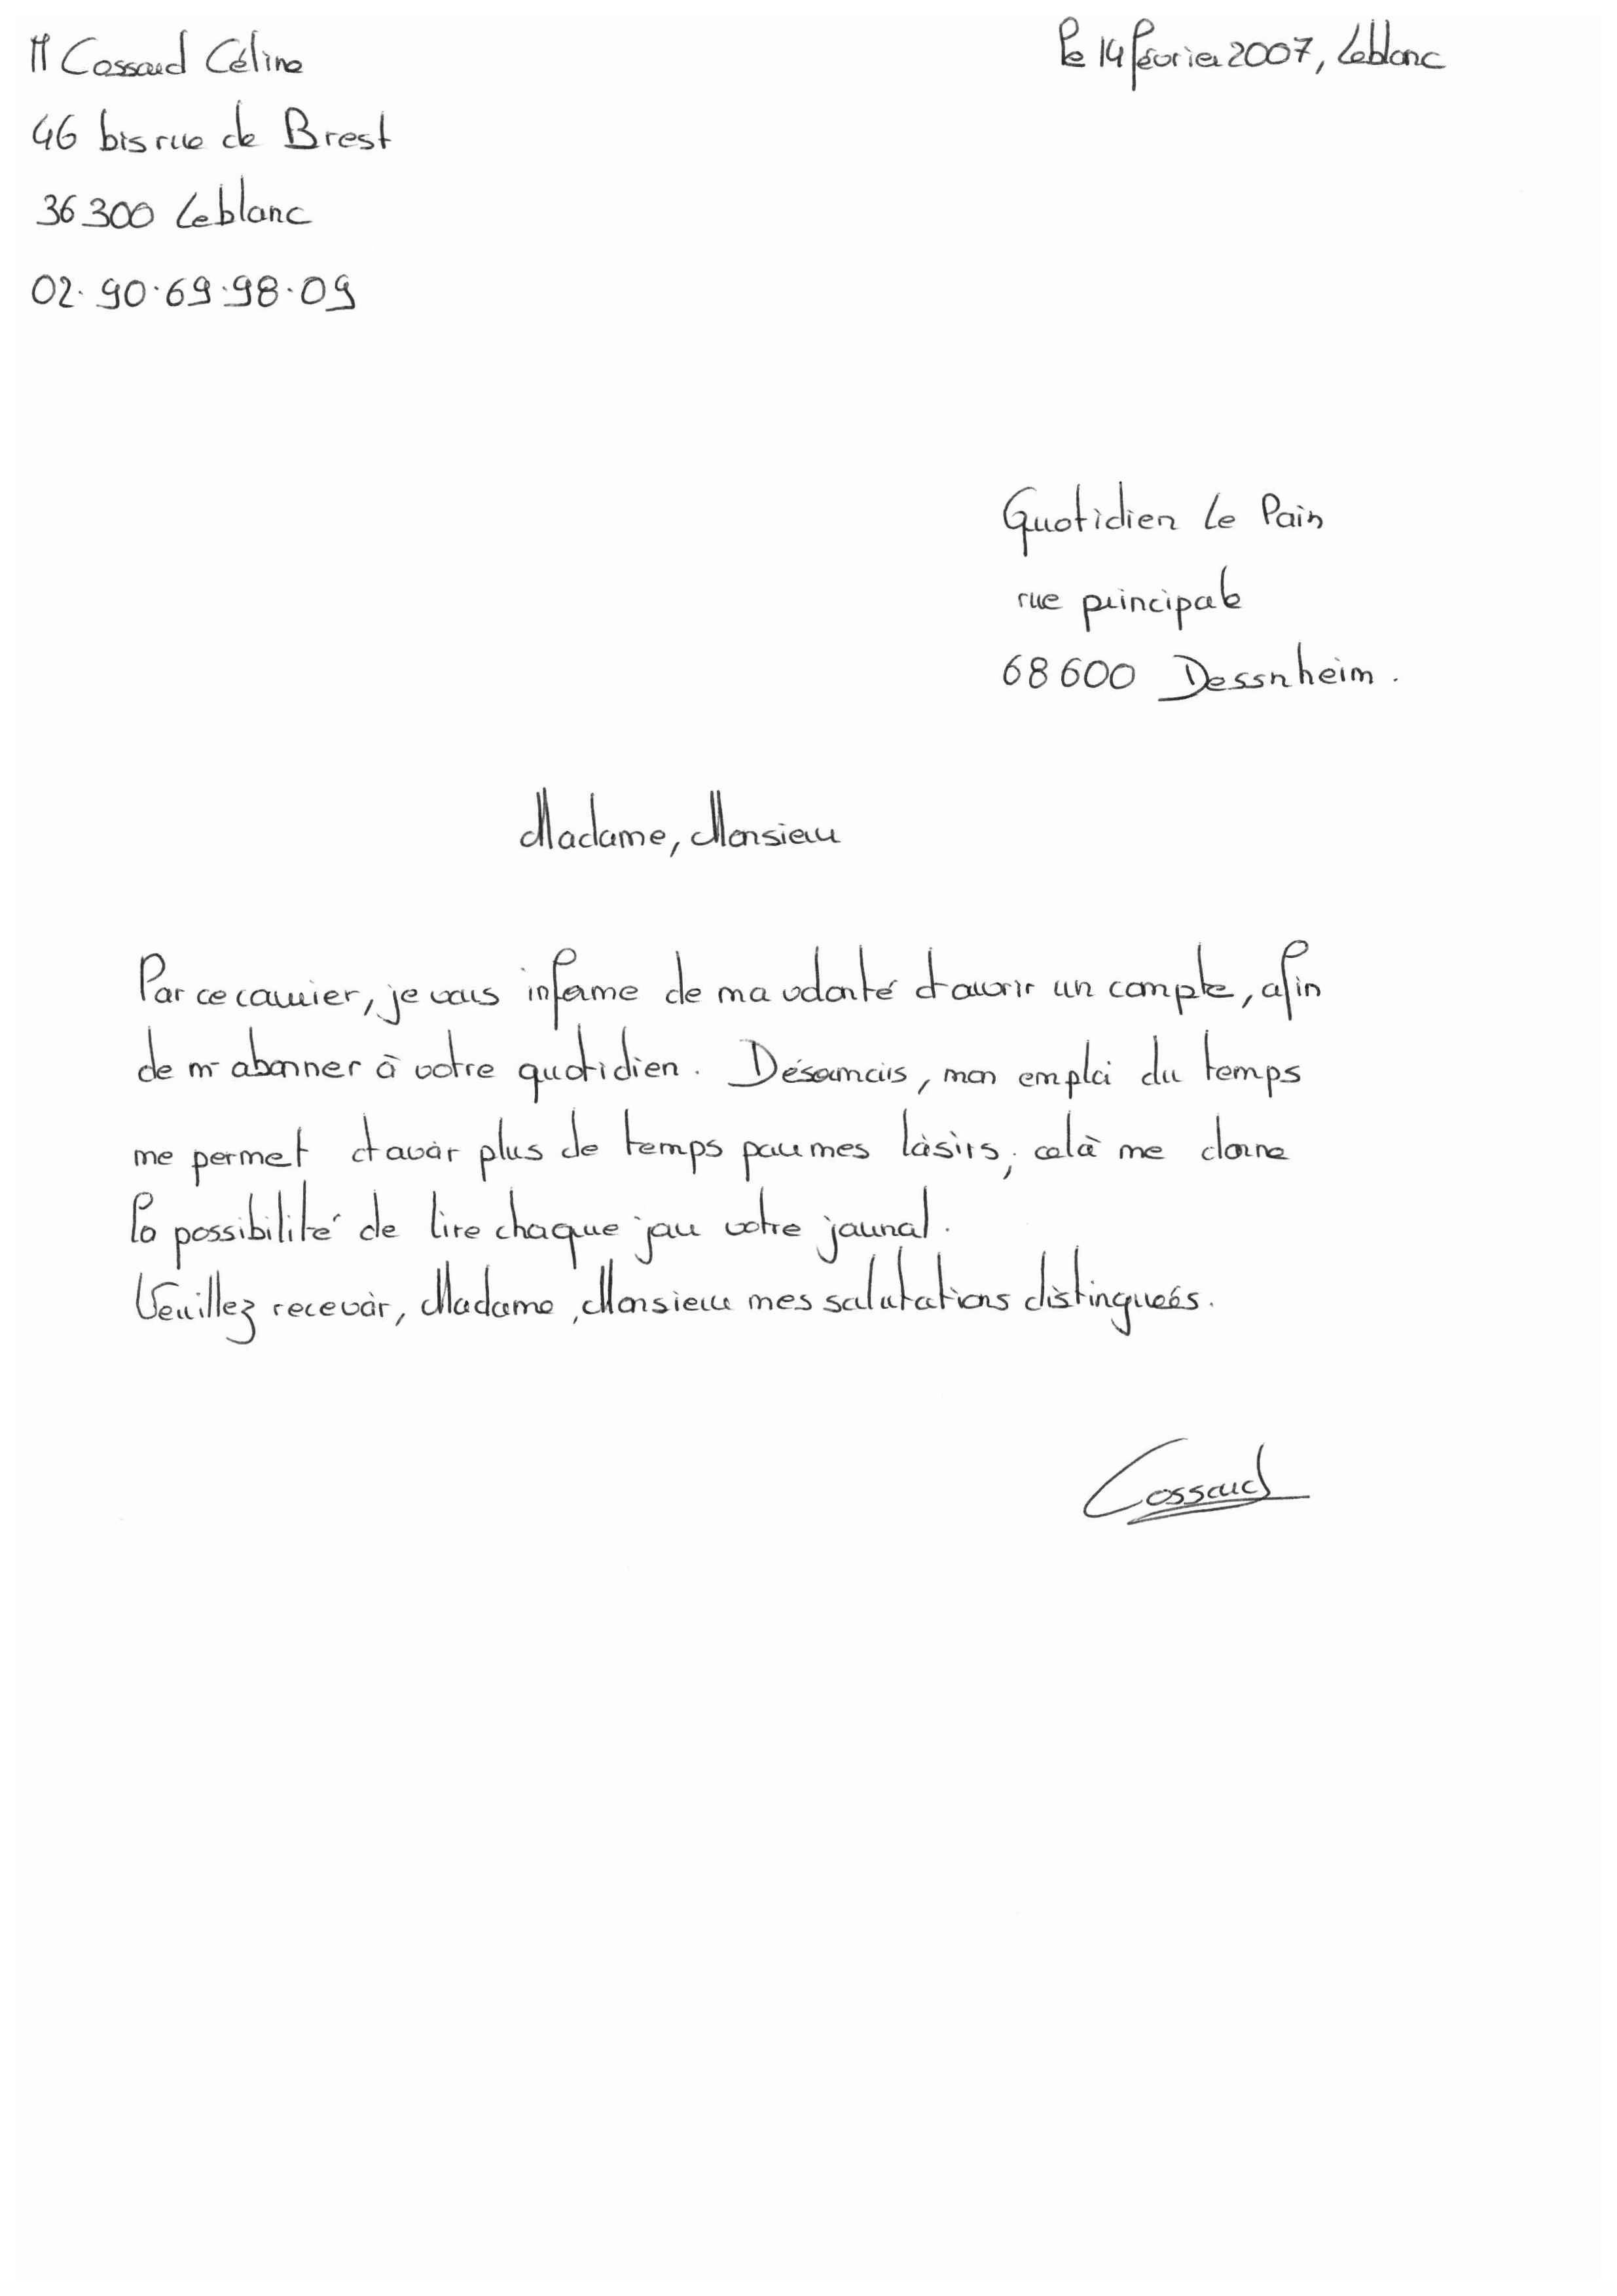 M Cossard Céline
46 bis rue de Brest
36300 Leblanc
02.90.69.98.09
le 14 février 2007, Leblanc
Quotidien Le Pain
rue principale
68600 Dessnheim.
Madame, Monsieur
Par ce courrier, je vous informe de ma volonté d'ouvrir un compte, afin
de m'abonner à votre quotidien. Désormais, mon emploi du temps
me permet d'avoir plus de temps pour mes loisirs, celà me donne
la possibilité de lire chaque jour votre journal.
Veuillez recevoir, Madame, Monsieur mes salutations distinguées.
Cossard